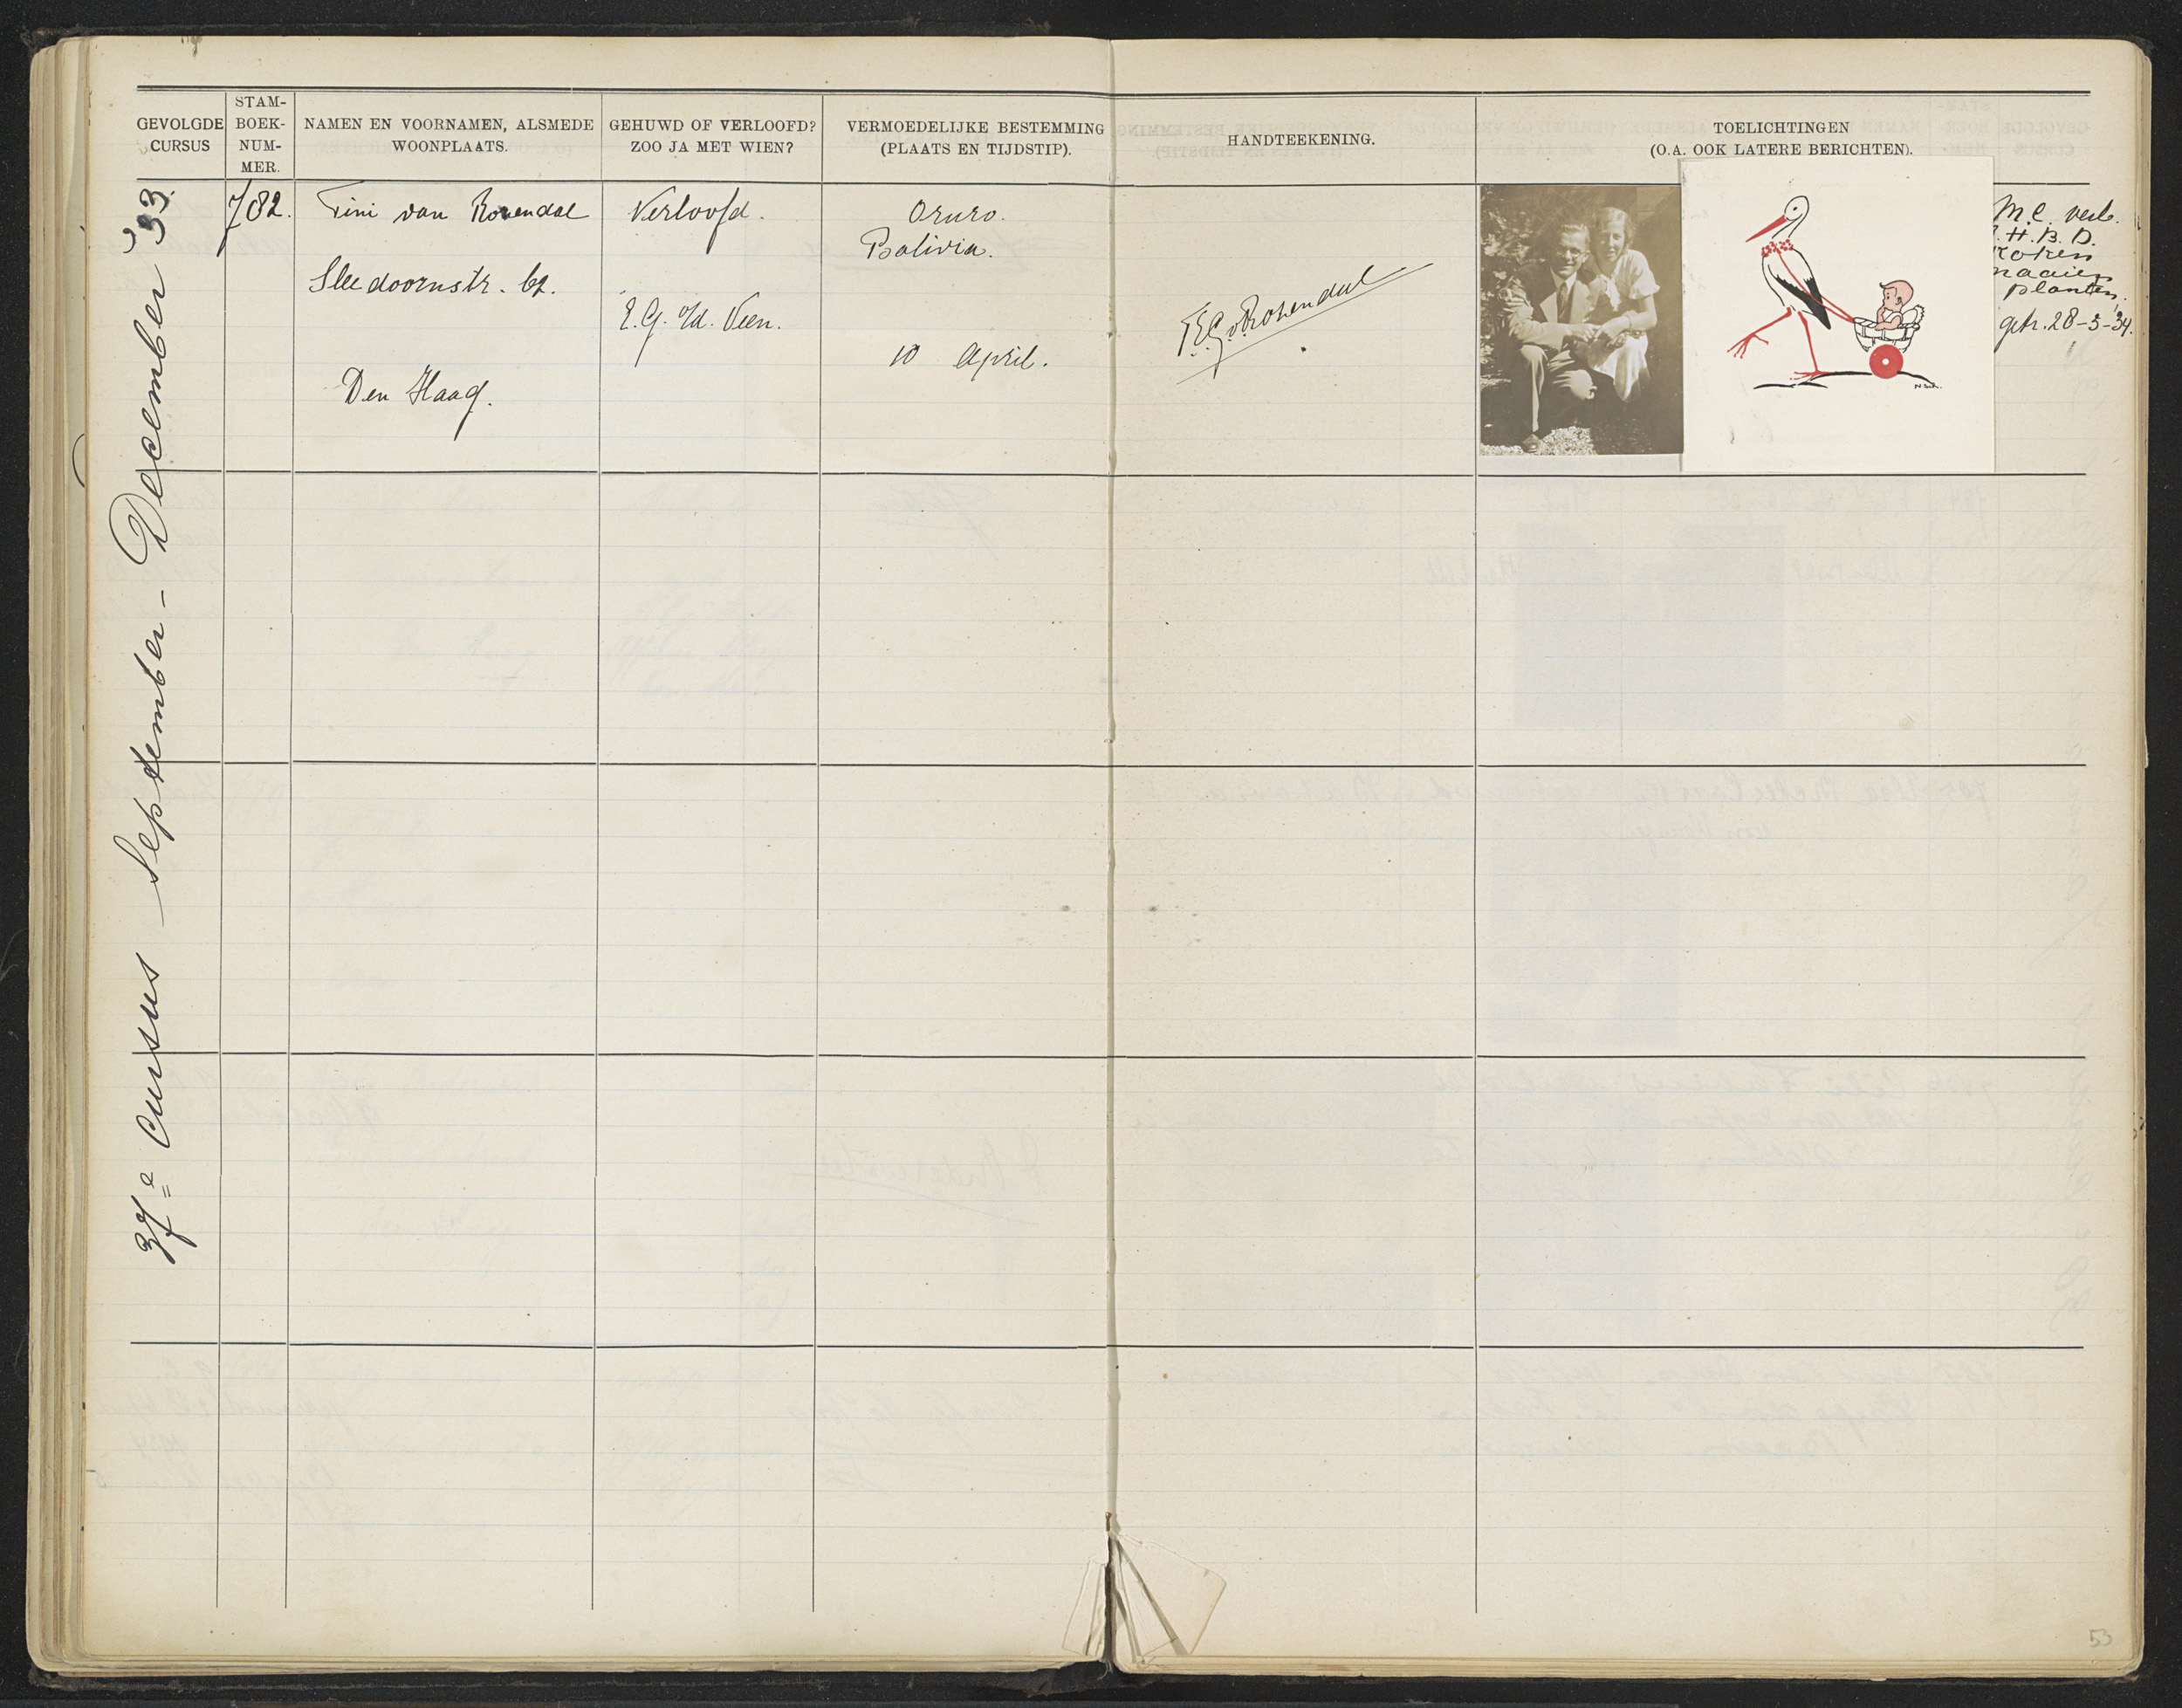 GEVOLGDE
CURSUS
STAM-
BOEK-
NUM-
MER.
NAMEN EN VOORNAMEN, ALSMEDE
WOONPLAATS.
GEHUWD OF VERLOOFD?
ZOO JA MET WIEN?
VERMOEDELIJKE BESTEMMING
(PLAATS EN TIJDSTIP).
HANDTEEKENING.
TOELICHTINGEN
(O.A. OOK LATERE BERICHTEN).
37e Cursus September - December '33.
782.
Tini van Rosendal
Sleedoornstr. 62.
Den Haag.
Verloofd.
E.G. v/d. Veen.
Oruro.
Bolivia.
10 April.
v Rosendaal
M.C. verb.
H.B.D.
koken
naaien
planten.
getr. 28-5-'34.
53